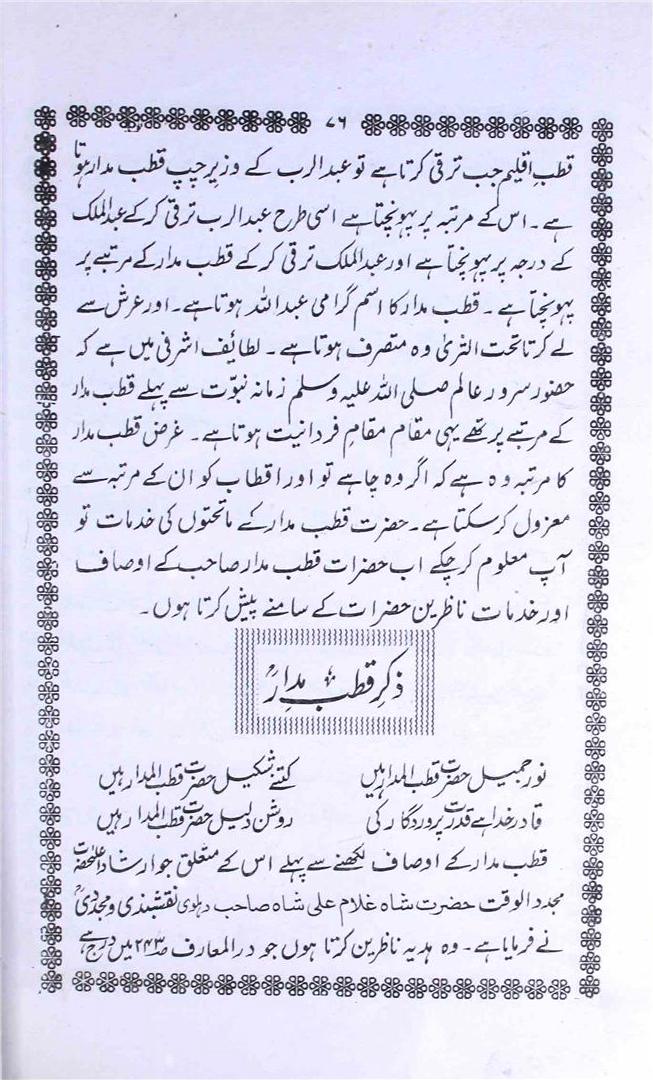 ۷۶
قطبِ اقلیم جب ترقی کرتا ہے تو عبدالرب کے وزیر چپ قطب مدار ہوتا
ہے۔ اس کے مرتبہ پر پہونچتا ہے اسی طرح عبدالرب ترقی کر کے عبدالملک
کے درجہ پر پہونچتا ہے اور عبدالملک ترقی کر کے قطب مدار کے مرتبے پر
پہونچتا ہے۔ قطب مدار کا اسم گرامی عبداللہ ہوتا ہے۔ اور عرش سے
لے کر تا تحت الثریٰ وہ متصرف ہوتا ہے۔ لطایٔف اشرفی میں ہے کہ
حضور سرور عالم صلی اللہ علیہ وسلم زمانہ نبوّت سے پہلے قطب مدار
کے مرتبے پر تھے یہی مقام مقامِ فردانیت ہوتا ہے۔ غرض قطب مدار
کا مرتبہ وہ ہے کہ اگر وہ چاہے تو اور اقطاب کو ان کے مرتبہ سے
معزول کر سکتا ہے۔ حضرت قطب مدار کے ماتحتوں کی خدمات تو
آپ معلوم کر چکے اب حضرات قطب مدار صاحب کے اوصاف
اور خدمات ناظرین حضرات کے سامنے پیش کرتا ہوں۔
ذکرِ قطب مدارؓ
نور جمیل حضرت قطب المدار ہیں کتنے شکیل حضرت قطب المدار ہیں
قادر خدا ہے قدرت پروردگار کی روشن دلیل حضرت قطب المدار ہیں
قطب مدار کے اوصاف لکھنے سے پہلے اس کے متعلق جو ارشاد اعلیٰحضرت
مجدد الوقت حضرت شاہ غلام علی شاہ صاحب دہلوی نقشبندی و مجددیؒ
نے فرمایا ہے۔ وہ ہدیہ ناظرین کرتا ہوں جو در المعارف صـ۲۴۳ میں درج ہے